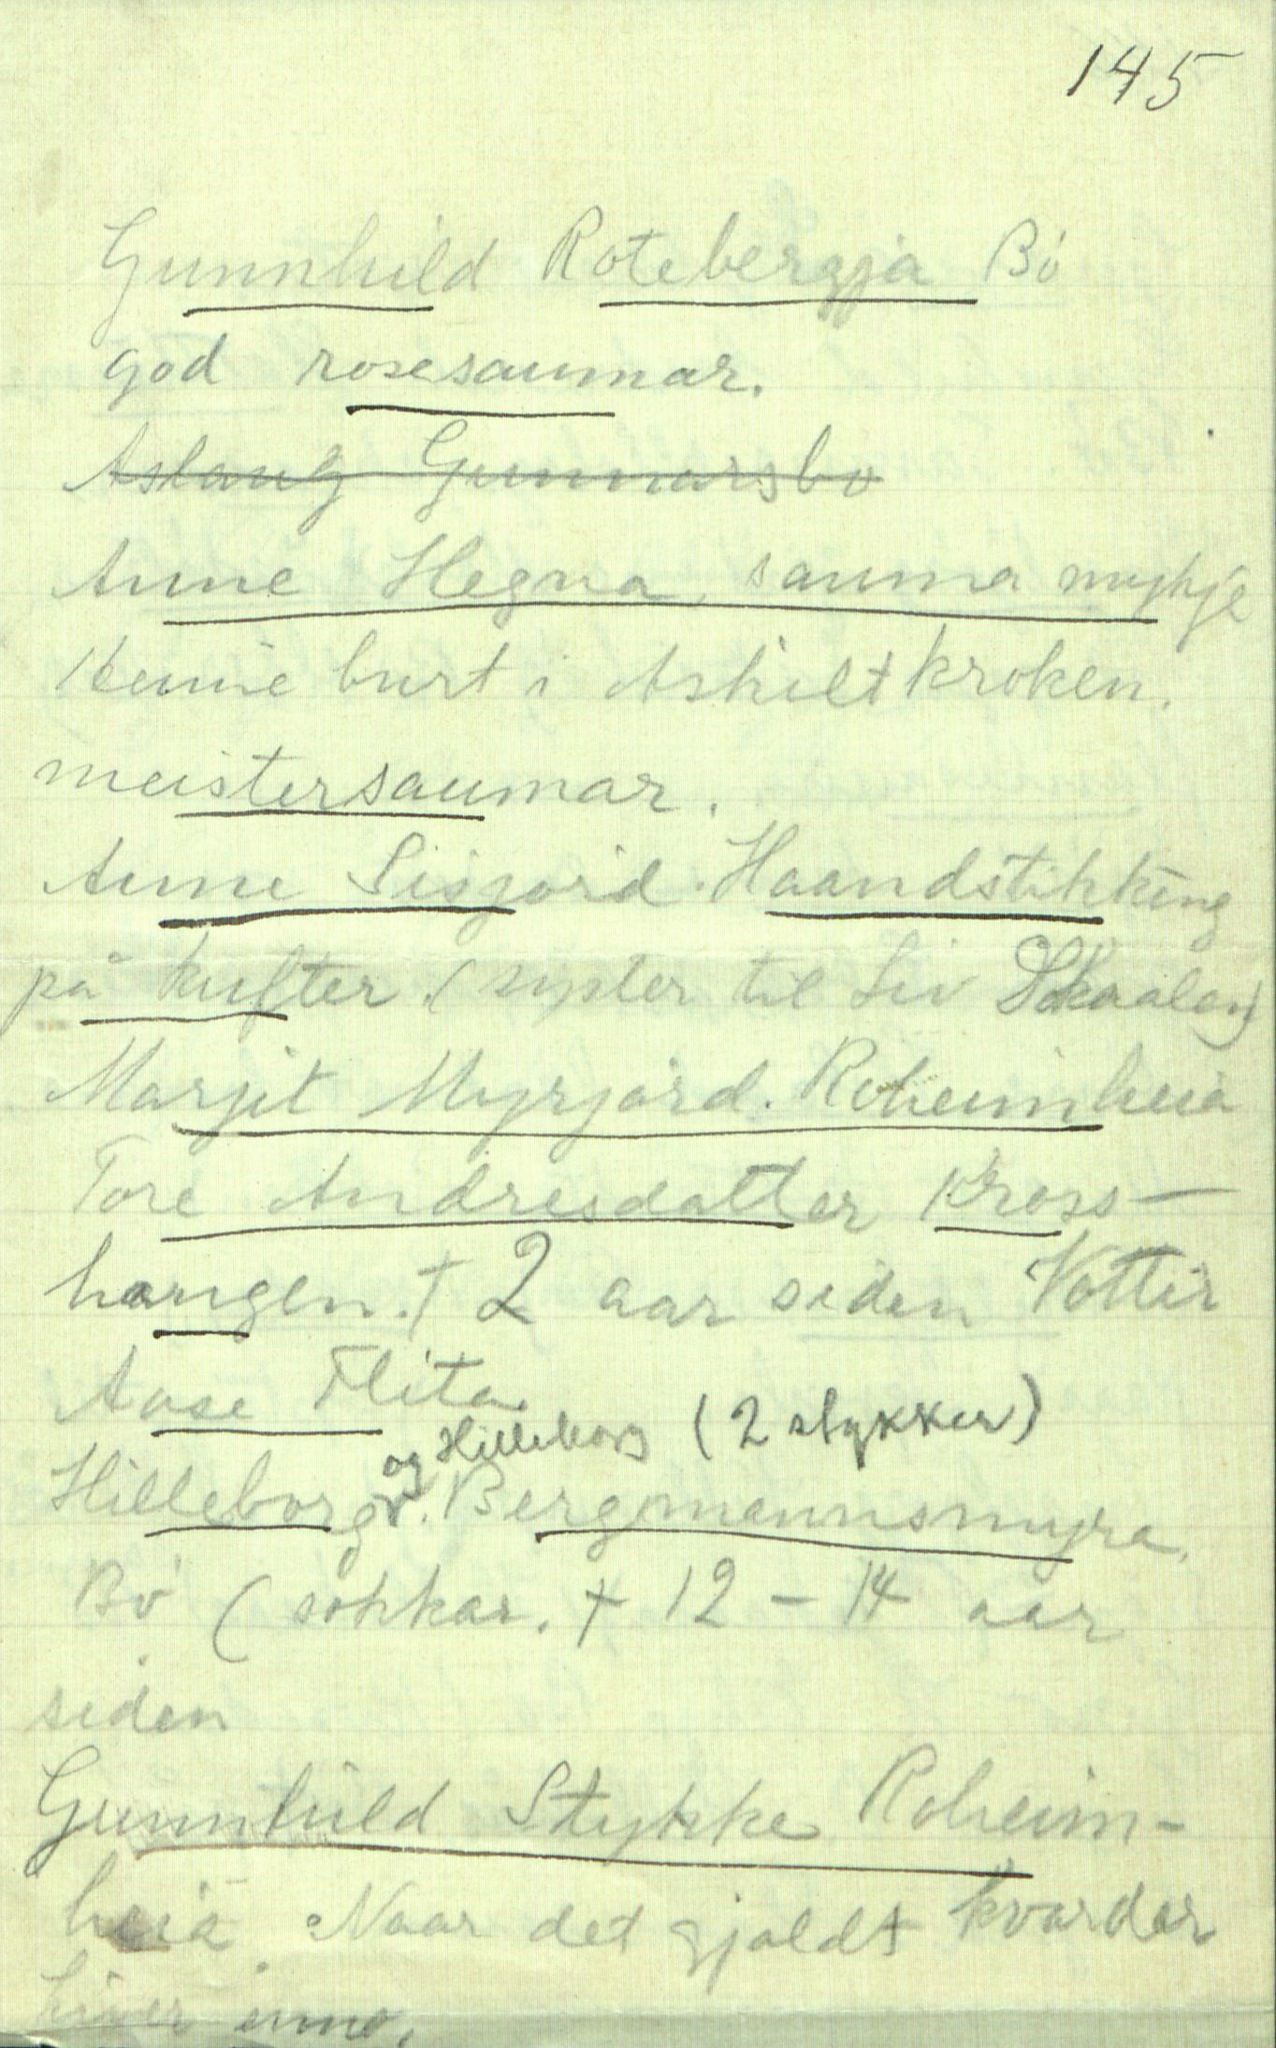 145
Gunnhild Rotebergja Bö
god rosesaumar.
Aslaug Gunnarsbø
Anne Hegna, sauma mykje
burt i Askiltkroken.
meistersaumar.
Anne Sisjord. Haandstikking
på kufter. (syster til Liv Skaalen)
Margit Myrjord. Roheimheia
Tore Andresdatter Kross-
haugen. † 2 aar siden Vottir
Aase Flita.
og Hilleborg (2 stykker)
Hilleborg. Bergmannsmyra.
Bö (sokkar. † 12 - 14 aar
siden
Gunnhild Stykke Roheim-
heia. Naar det gjaldt kvardar
enno.